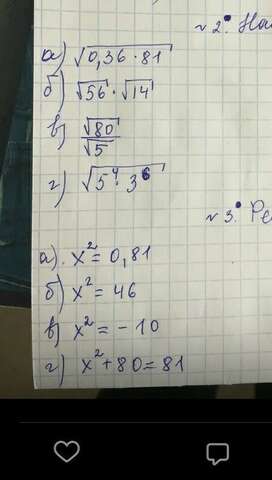 №2. На
а) √0,36·81
б) √56 · √14
в) √80/√5
г) √5⁴·3⁶
№3. Ре
а). x² = 0,81
б) x² = 46
в) x² = -10
г) x² + 80 = 81